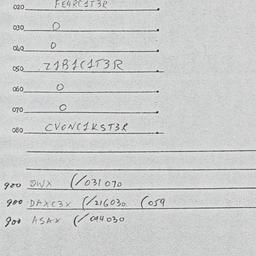 020 FE4RC1T3R
030 0
040 0
050 Z1B1C1T3R
060 0
070 0
080 CVONC1KST3R
900 DWX (/031070
900 DAXC3X (/216030 (059
900 ASAX (/044030